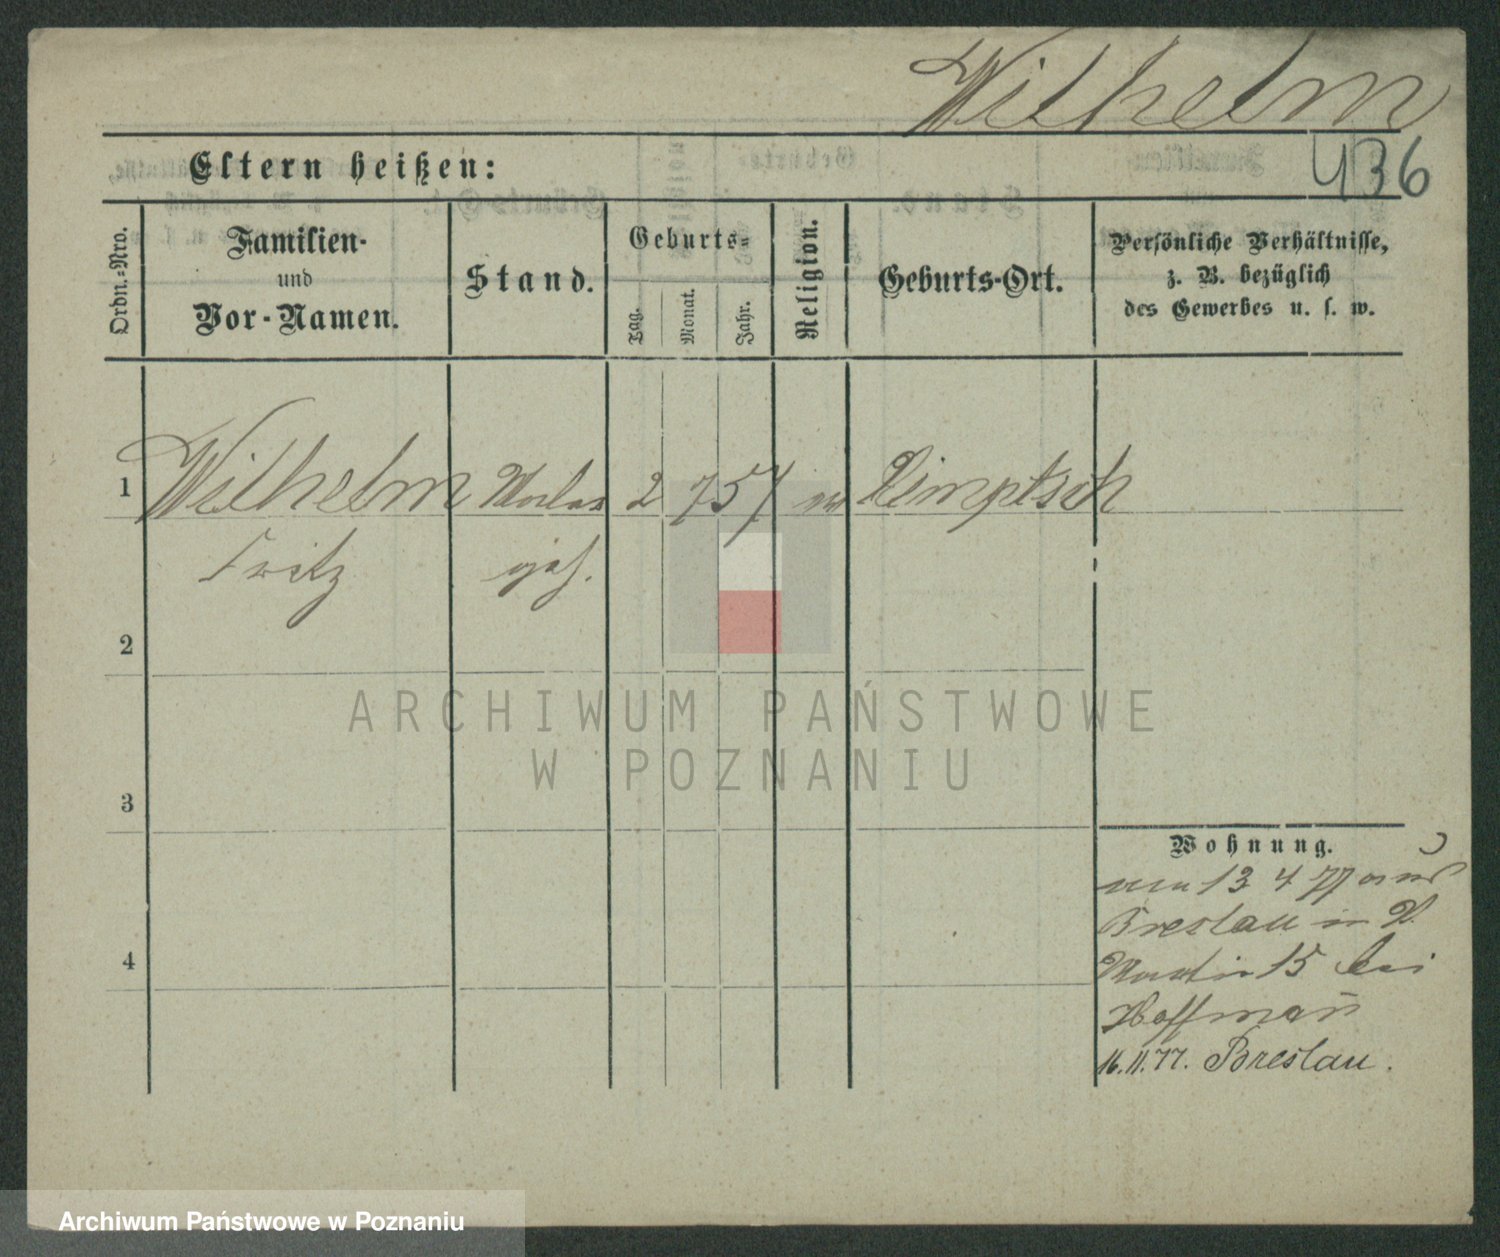 Wilhelm
436
Eltern heißen:
Ordn.-Nro.
Familien-
und
Vor-Namen.
Stand.
Geburts-
Tag.
Monat.
Jahr.
Religion.
Geburts-Ort.
Persönliche Verhältnisse,
z. B. bezüglich
des Gewerbes u. s. w.
1 Wilhelm 2 7 57 Nimptsch
Fritz
2
3
4
Wohnung.
13 4 77 aus
Breslau in St.
Martin 15 bei
Hoffmañ
16.11.77. Breslau.
ARCHIWUM PAŃSTWOWE
W POZNANIU
Archiwum Państwowe w Poznaniu